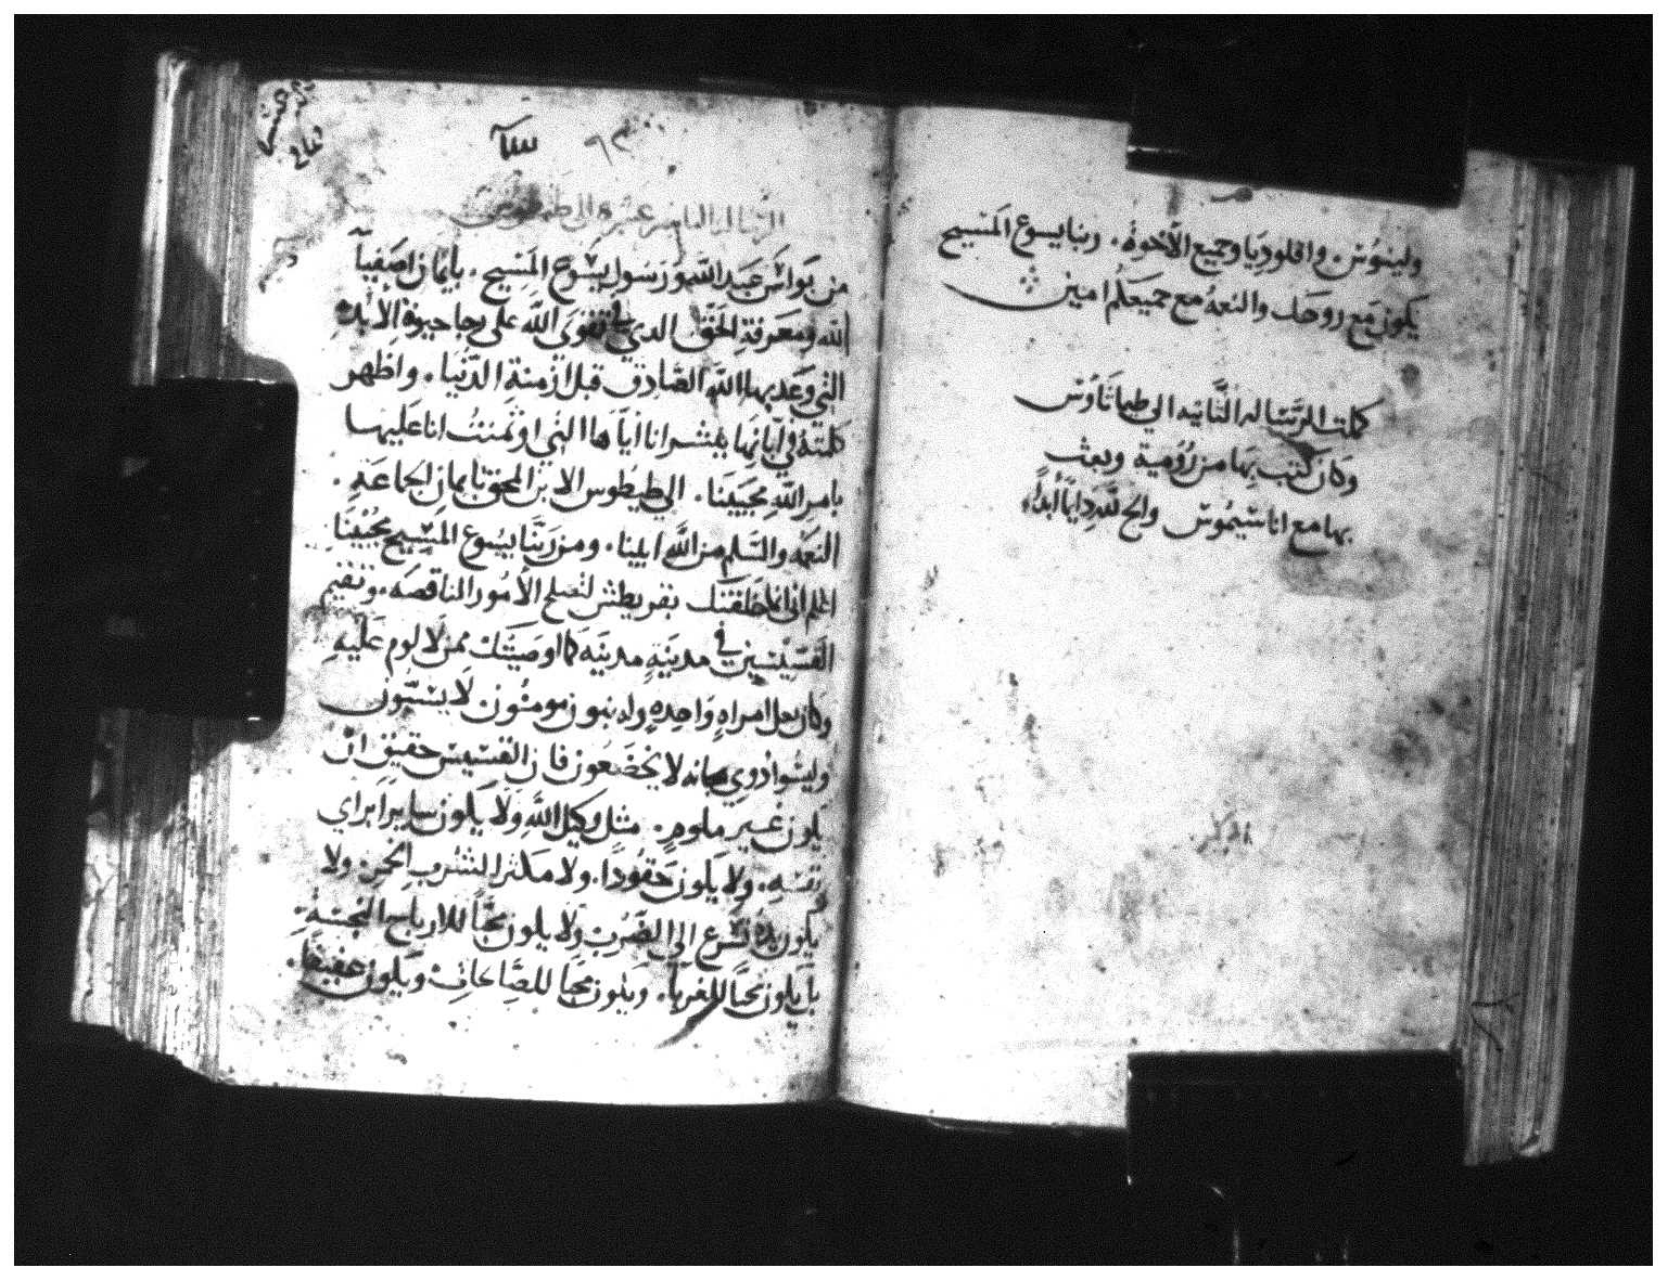 ولينوس. واقلوديا وجميع الاخوة. ربنا يسوع المسيح
يكون مع روحك والنعمه مع جميعكم امين
كملت الرساله الثانيه الي طيماتاوس
وكان كتب بها من رومية وبعث
بها مع اناسيموس والحمد لله دايماً ابداً
من بولس عبد الله ورسول يسوع المسيح. بايمان اصفيآ
الله ومعرفة الحق الدي في تقوى الله على رجا حيوة الابده
التي وعد بها الله الصادق قبل ازمنة الدنيا. واظهر
كلمته في آبانها ببشرانا اياها التي اوتمنت انا عليها
بامر الله محيينا. الي طيطوس الابن المحق بايمان الجماعة.
النعمه والسلم من الله ابينا. ومن ربنا يسوع المسيح محيينا
اعلم اني انما خلفتك بقريطش لتصلح الامور الناقصه. وتقيم
القسيسين في مدينة مدينه كما اوصيتك ممن لا لوم عليه
وكان بعل امراه واحده وله بنون مومنون. لا يسبون
وليسوا ذوي لا يخضعون فان القسيس حقيق ان
يكون غير ملوم. مثل وكيل الله ولا يكون سايرا براي
نفسه. ولا يكون حقودا. ولا مكثرا لشرب الخمر. ولا
يكون يده تسرع الي الضرب ولا يكون محباً للارباح النجسة.
بل يكون محباً للغربا. ويكون محبا للصالحات ويكون عفيفا.